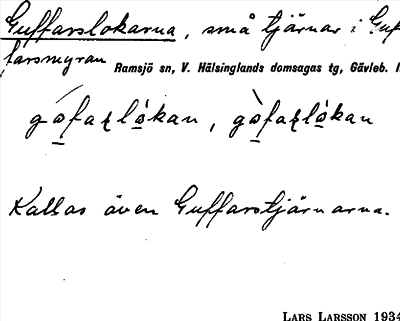 Guffarslokarna, små tjärnar i Guf-
farsmyran Ramsjö sn, V. Hälsinglands domsagas tg, Gävleb. l
gòfaʐlókan, gòfaʐlókan
Kallas även Guffarstjärnarna.
LARS LARSSON 1934